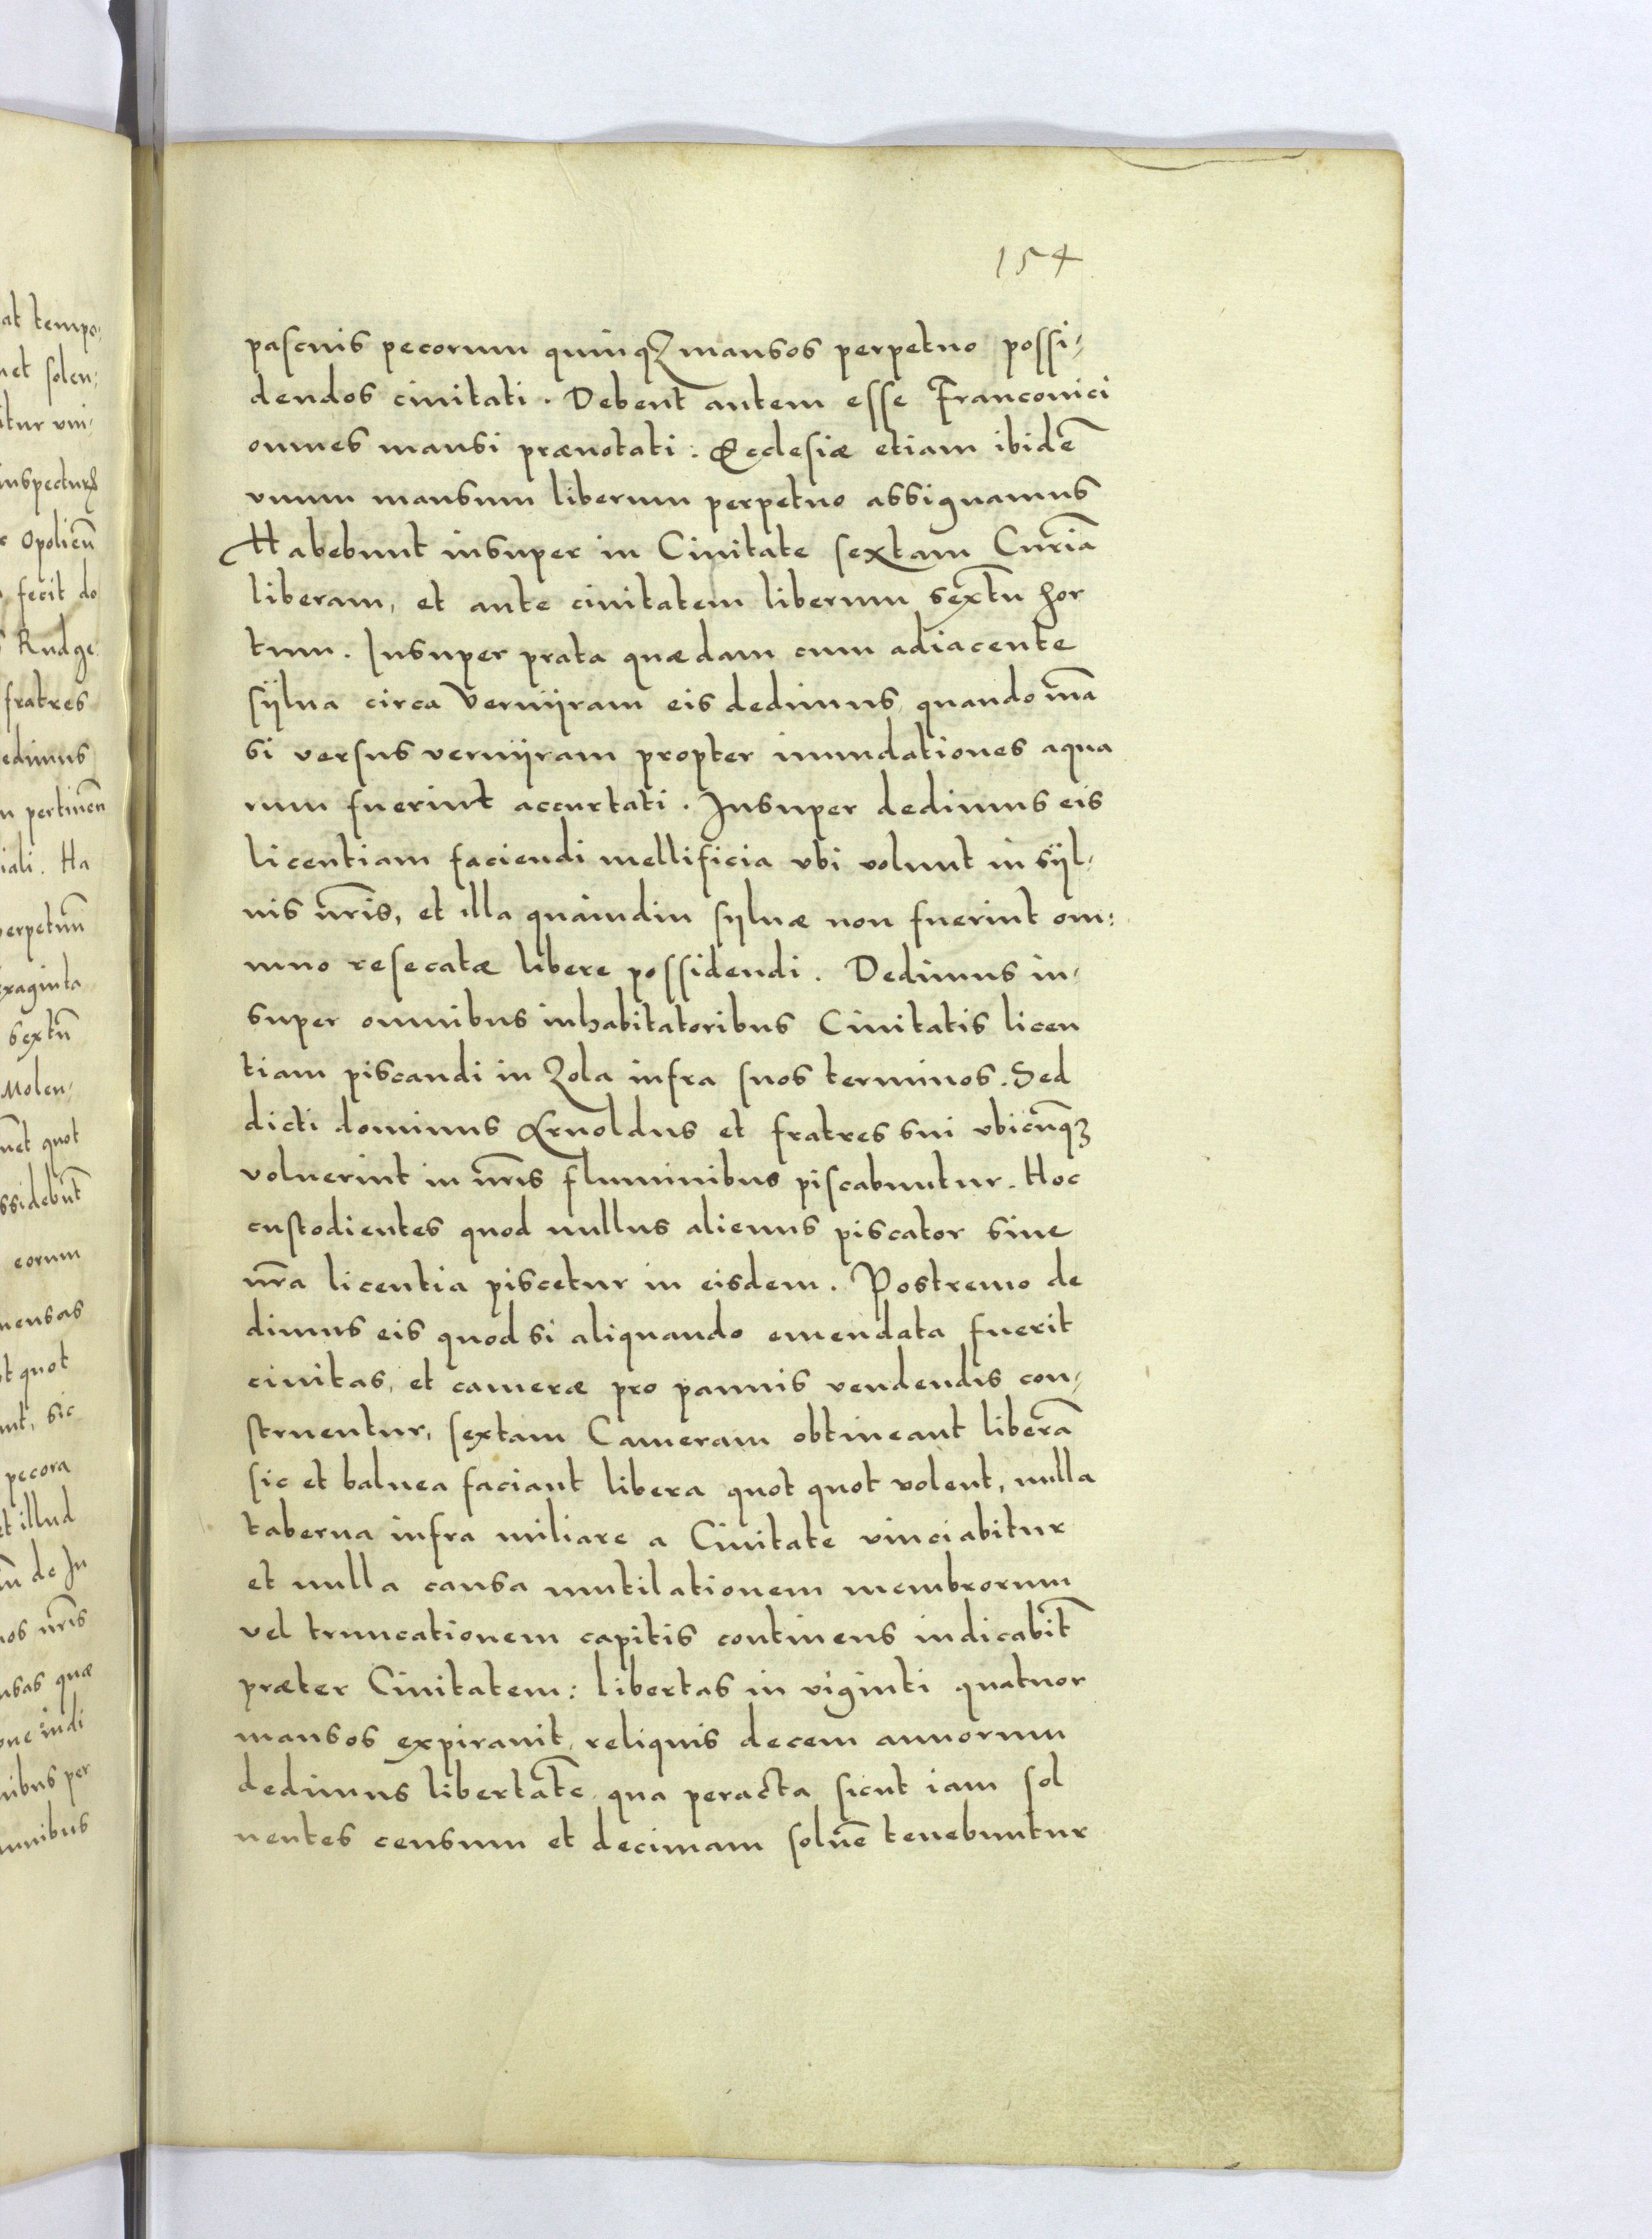 154
pascuis pecorum quinqꝫ mansos perpetuo possi-
dendos ciuitati. Debent autem esse Franconici
omnes mansi prænotati: Ecclesiæ etiam ibidē
vnum mansum liberum perpetuo assignamus
Habebunt insuper in Ciuitate sextam Curiā
liberam, et ante ciuitatem liberum sextū hor
tum. Insuper prata quædam cum adiacente
sÿlua circa Vernÿram eis dedimus, quando mā
si versus vernÿram propter inundationes aqua
rum fuerint accurtati. Insuper dedimus eis
licentiam faciendi mellificia vbi volunt in sÿl-
uis nr̄is, et illa quamdiu sylnæ non fuerint om:
nino resecatæ libere possidendi. Dedimus in-
super omnibus inhabitatoribus Ciuitatis licen
tiam piscandi in Zola infra suos terminos. Sed
dicti dominus Arnoldus et fratres sui vbicūqꝫ
voluerint in nr̄is fluminibus piscabuntur. Hoc
custodientes quod nullus alienus piscator sine
nr̄a licentia piscetur in eisdem. Postremo de
dimus eis quod si aliquando emendata fuerit
ciuitas, et cameræ pro pannis vendendis con-
struentur, sextam Cameram obtineant liberā
sic et balnea faciant libera quot quot volent, nulla
taberna infra miliare a Ciuitate vinciabitur
et nulla causa mutilationem membrorum
vel truncationem capitis continens iudicabit̄
præter Ciuitatem: libertas in viginti quatuor
mansos expirauit, reliquis decem annorum
dedimus libertatē, qua peracta sicut iam sol
uentes censum et decimam soluē tenebuntur